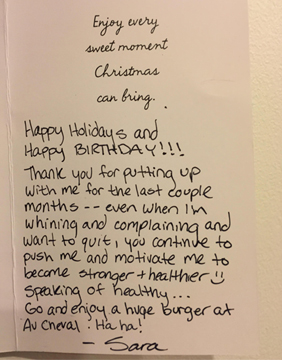 Enjoy every
sweet moment
Christmas
can bring.
Happy Holidays and
Happy BIRTHDAY!!!
Thank you for putting up
with me for the last couple
months -- even when I'm
whining and complaining and
want to quit, you continue to
push me and motivate me to
become stronger + healthier☺
Speaking of healthy...
Go and enjoy a huge burger at
Au Cheval. Ha ha!
- Sara